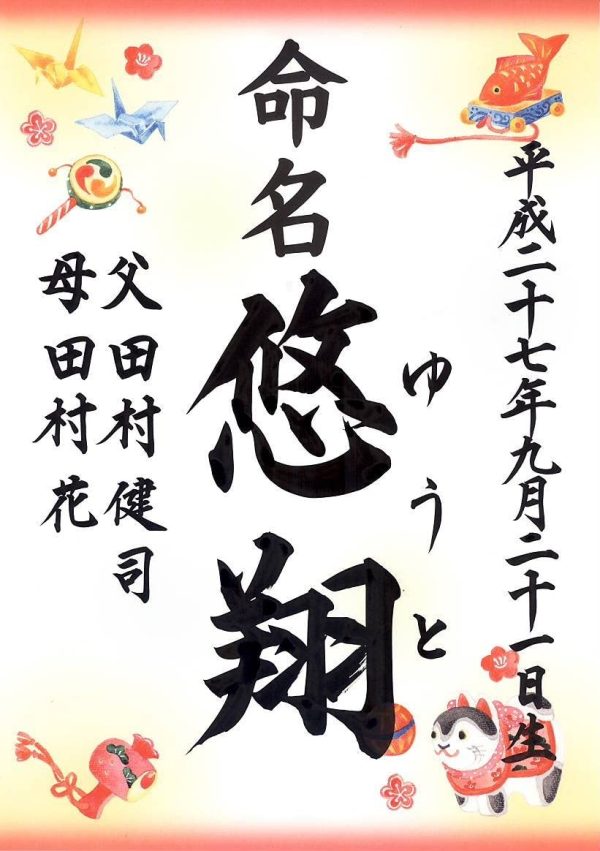 平成二十七年九月二十一日生
命名
悠翔
ゆうと
父 田村健司
母 田村花